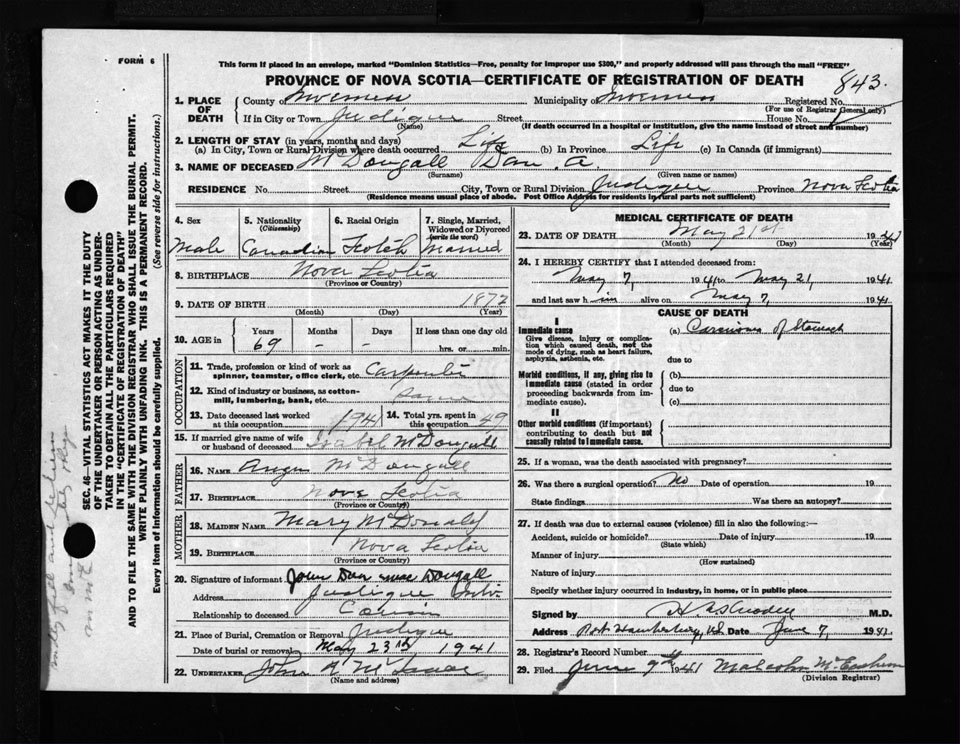 FORM 6
This form if placed in an envelope, marked "Dominion Statistics—Free, penalty for improper use $300," and properly addressed will pass through the mail "FREE"
PROVINCE OF NOVA SCOTIA—CERTIFICATE OF REGISTRATION OF DEATH
843.
1. PLACE OF DEATH
County of Inverness Municipality of Inverness Registered No.
(For use of Registrar General only)
If in City or Town Judique Street House No.
(Name) (If death occurred in a hospital or institution, give the name instead of street and number)
2. LENGTH OF STAY (in years, months and days)
(a) In City, Town or Rural Division where death occurred Life (b) In Province Life (c) In Canada (if immigrant)
3. NAME OF DECEASED McDougall Dan. A.
(Surname) (Given name or names)
RESIDENCE No. Street City, Town or Rural Division Judique Province Nova Scotia
(Residence means usual place of abode. Post Office Address for residents in rural parts not sufficient)
4. Sex
Male
5. Nationality
(Citizenship)
Canadian
6. Racial Origin
Scotch
7. Single, Married, Widowed or Divorced
(write the word)
Married
8. BIRTHPLACE Nova Scotia
(Province or Country)
9. DATE OF BIRTH 1872
(Month) (Day) (Year)
10. AGE in
Years Months Days If less than one day old
69 - - hrs. or min.
OCCUPATION
11. Trade, profession or kind of work as spinner, teamster, office clerk, etc. Carpenter
12. Kind of industry or business, as cotton-mill, lumbering, bank, etc. Same
13. Date deceased last worked at this occupation 1941
14. Total yrs. spent in this occupation 49
15. If married give name of wife or husband of deceased Isabel McDougall
FATHER
16. NAME Angus McDougall
17. BIRTHPLACE Nova Scotia
(Province or Country)
MOTHER
18. MAIDEN NAME Mary McDonald
19. BIRTHPLACE Nova Scotia
(Province or Country)
20. Signature of informant John Dan Mac Dougall
Address Judique
Relationship to deceased Cousin
21. Place of Burial, Cremation or Removal Judique
Date of burial or removal May 23rd, 1941
22. UNDERTAKER John A McIsaac
(Name and address)
MEDICAL CERTIFICATE OF DEATH
23. DATE OF DEATH May 21st 19
(Month) (Day) (Year)
24. I HEREBY CERTIFY that I attended deceased from:
May 7, 1941 to May 21, 1941
and last saw him alive on May 7, 1941
CAUSE OF DEATH
I
Immediate cause
Give disease, injury or complication which caused death, not the mode of dying, such as heart failure, asphyxia, asthenia, etc.
(a) Carcinoma of Stomach
due to
Morbid conditions, if any, giving rise to immediate cause (stated in order proceeding backwards from immediate cause).
(b)
due to
(c)
II
Other morbid conditions (if important) contributing to death but not causally related to immediate cause.
25. If a woman, was the death associated with pregnancy?
26. Was there a surgical operation? No Date of operation 19
State findings Was there an autopsy?
27. If death was due to external causes (violence) fill in also the following:—
Accident, suicide or homicide? Date of injury 19
(State which)
Manner of injury
(How sustained)
Nature of injury
Specify whether injury occurred in industry, in home, or in public place
Signed by M.D.
Address Port Hawkesbury, N.S. Date June 7, 1941
28. Registrar's Record Number
29. Filed June 9th 1941 Malcolm McEachern
(Division Registrar)
SEC. 46—VITAL STATISTICS ACT MAKES IT THE DUTY
OF THE UNDERTAKER OR PERSON ACTING AS UNDER-
TAKER TO OBTAIN ALL THE PARTICULARS REQUIRED
IN THE "CERTIFICATE OF REGISTRATION OF DEATH"
AND TO FILE THE SAME WITH THE DIVISION REGISTRAR WHO SHALL ISSUE THE BURIAL PERMIT.
WRITE PLAINLY WITH UNFADING INK. THIS IS A PERMANENT RECORD.
Every item of Information should be carefully supplied. (See reverse side for instructions.)